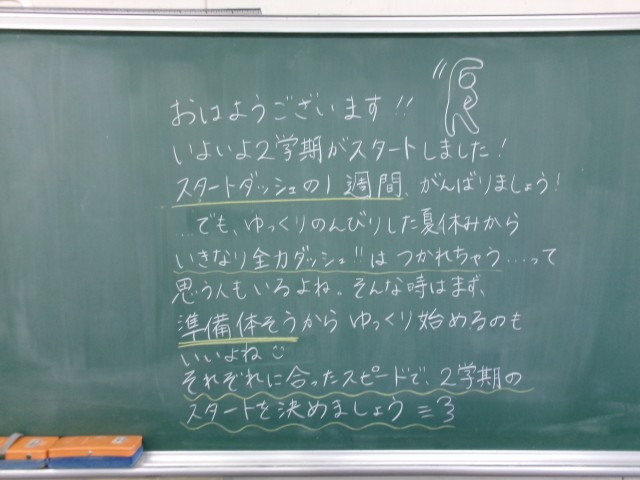 おはようございます!!
いよいよ2学期がスタートしました!
スタートダッシュの1週間、がんばりましょう!
…でも、ゆっくりのんびりした夏休みから
いきなり全力ダッシュ!!はつかれちゃう…って
思う人もいるよね。そんな時はまず、
準備体そうからゆっくり始めるのも
いいよね
それぞれに合ったスピードで、2学期の
スタートを決めましょう